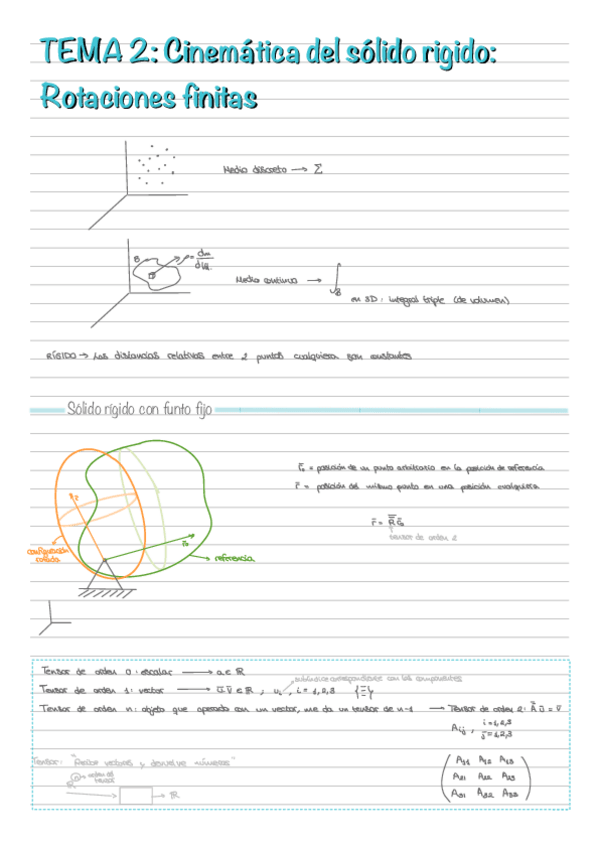 TEMA 2: Cinemática del sólido rigido:
Rotaciones finitas
Medio discreto → Σ
B ρ = dm/dV
Medio continuo → ∫B
en 3D: integral triple (de volumen)
RÍGIDO → Las distancias relativas entre 2 puntos cualquiera son constantes
Sólido rígido con funto fijo
r̄₀ = posición de un punto arbitrario en la posición de referencia
r̄ = posición del mismo punto en una posición cualquiera
r̄ = R̿ r̄₀
tensor de orden 2
r̄
r̄₀
configuración rotada
referencia
Tensor de orden 0: escalar → a ∈ ℝ
subíndice correspondiente con las componentes
Tensor de orden 1: vector → ū, v̄ ∈ ℝ, uᵢ, i = 1,2,3
Tensor de orden n: objeto que operado con un vector, me da un tensor de n-1 → Tensor de orden 2: A ū = v̄
Aij, i=1,2,3
j=1,2,3
Tensor: vectores y devuelve números"
orden del tensor
→ ℝ
A11 A12 A13
A21 A22 A23
A31 A32 A33